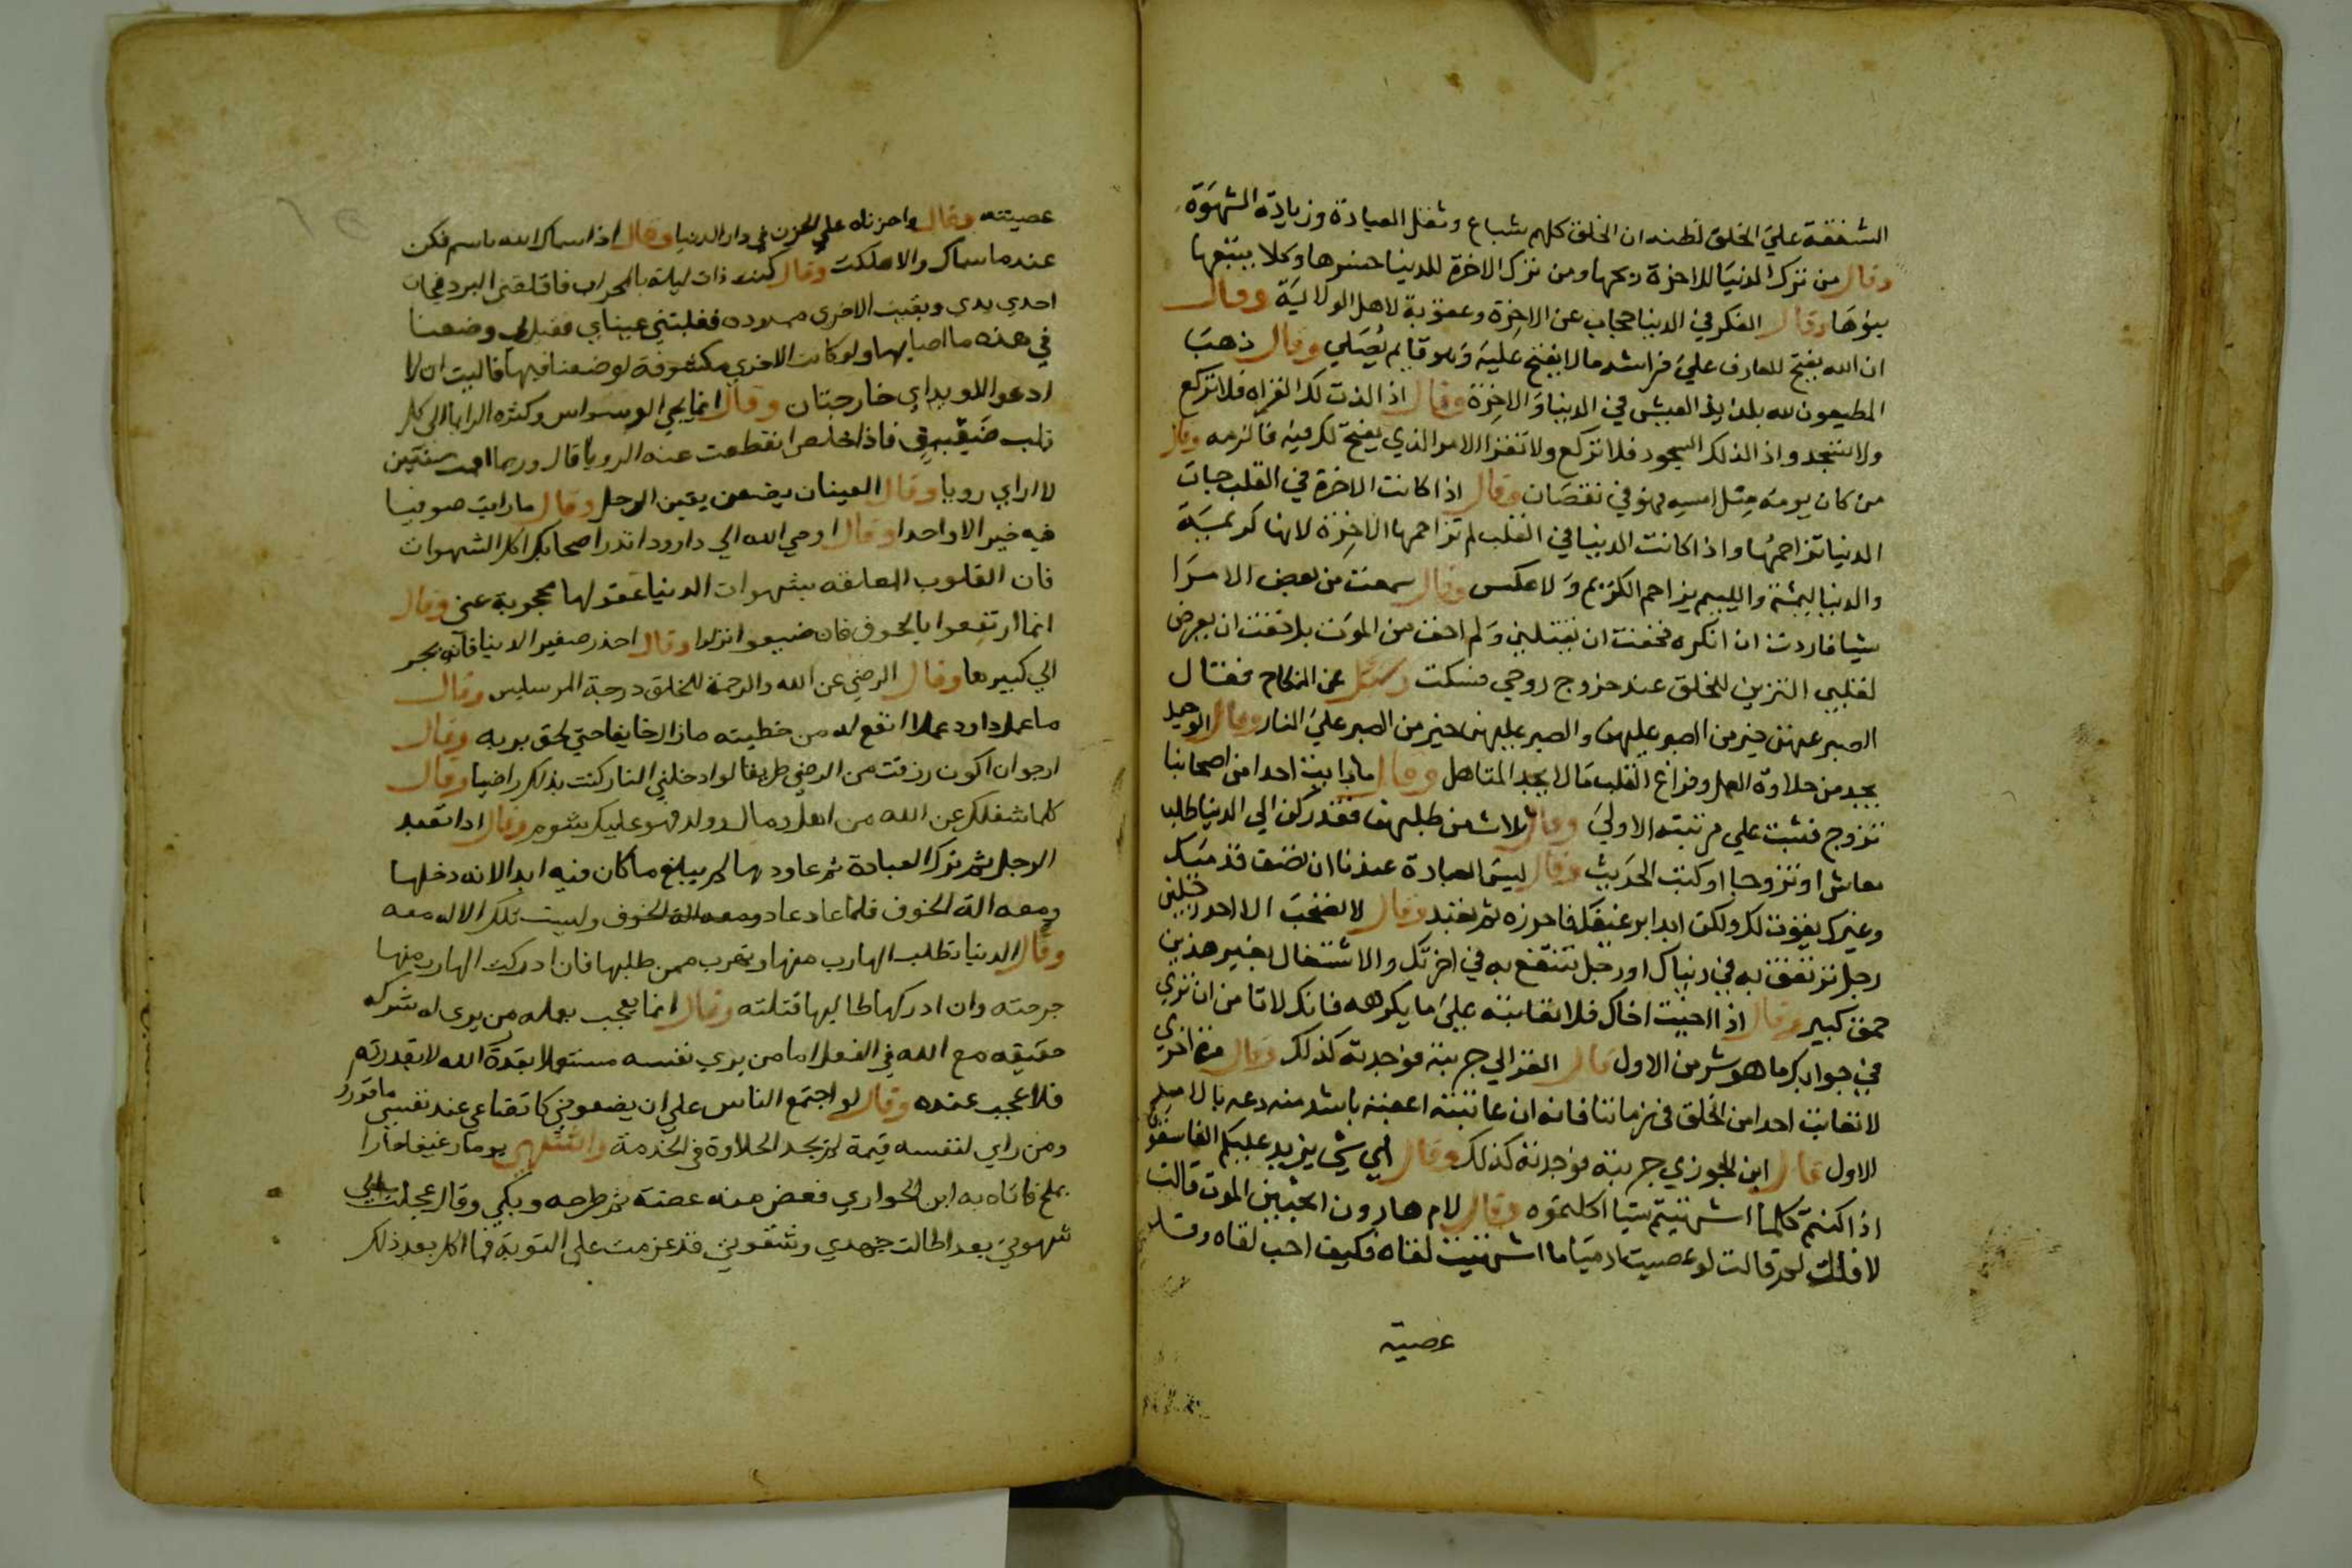 الشفقة علي الخلق لظنه ان الخلق كلهم شباع وثقل العبادة وزيادة الشهوة
وقال من ترك الدنيا للاخرة ربحها ومن ترك الاخرة للدنيا خسرها وكلا يتبعها
بنوها وقال الفكر في الدنيا حجاب عن الاخرة وعقوبة لاهل الولاية وقال
ان الله يفتح للعارف علي فراشه مالا يفتح عليه وهو قايم يصلي وقال ذهب
المطيعون لله بلذيذ العيش في الدنيا والاخرة وقال اذا لذت لك القراه فلا تركع
ولا تسجد واذا لذ لك السجود فلا تركع ولا تقرا الامر الذي يفتح لك فيه فالزمه وقال
من كان يومه مثل امسه فهو في نقصان وقال اذا كانت الاخرة في القلب جات
الدنيا تزاحمها واذا كانت الدنيا في القلب لم تزاحمها الاخرة لانها كريمة
والدنيا ليمة والليم يزاحم الكريم ولا عكس وقال سمعت من بعض الامرا
شيا فاردت ان انكره فخفت ان يقتلني ولم اخف من الموت بل خفت ان يعرض
لقلبي التزين للخلق عند خروج روحي فسكت وسئل عن النكاح فقال
الصبر عنهن خير من الصبر عليهن والصبر عليهن خير من الصبر علي النار وقال الوحيد
يجد من حلاوة العمل وفراغ القلب مالا يجد المتاهل وقال ما رايت احدا من اصحابنا
تزوج فثبت علي مرتبته الاولي وقال ثلاث من طلبهن فقد ركن الي الدنيا طلب
معاش او تزوج او كتب الحديث وقال ليس العبادة عندنا ان تصف قدميك
وغيرك يفوت لك ولكن ابدا برغيفك فاحرزه ثم تعبد وقال لا تصحب الا احد رجلين
رجل ترتفق به في دنياك او رجل تنتفع به في اخرتك والاشتغال بغير هذين
حمق كبير وقال اذا احببت اخاك فلا تعاتبه علي ما يكرهه فانك لا تامن ان تري
في جوابك ما هو شر من الاول قال الغزالي جربته فوجدته كذلك وقال مرة اخري
لا تعاتب احدا من الخلق في زماننا فانه ان عاتبته اعقبته باشد منه دعه بالامر
الاول قال ابن الجوزي جربته فوجدته كذلك وقال اي شي يزيد عليكم الفاسقون
اذا كنتم كلما اشتهيتم شيا اكلتموه وقال لام هارون اتحبين الموت قالت
لا قلت لم قالت لو عصيت ادميا ما اشتهيت لقاه فكيف احب لقاه وقد
عصيته
عصيته وقال واحزناه علي الحزن في دار الدنيا وقال اذا سماك الله باسم فكن
عندما سماك والا هلكت وقال كنت ذات ليلة بالمحراب فاقلقني البرد فخبات
احدي يدي وبقيت الاخري ممدوده فغلبتني عيناي فقيل لي وضعنا
في هذه ما اصابها ولو كانت الاخري مكشوفة لوضعنا فيها فاليت ان لا
ادعو الا ويداي خارجتان وقال انما يجي الوسواس وكثره الرايا الي كل
قلب ضيق فاذا خلص انقطعت عنه الرويا قال وربما اقمت سنتين
لا اراي رويا وقال العينان يضعن يقين الرجل وقال ما رايت صوفيا
فيه خير الا واحدا وقال اوحي الله الي داود انذر اصحابك اكل الشهوات
فان القلوب المعلقه بشهوات الدنيا عقولها محجوبة عني وقال
انما ارتفعوا بالخوف فان ضيعوا نزلوا وقال احذر صغير الدنيا فانه يجر
الي كبيرها وقال الرضي عن الله والرحمة للخلق درجة المرسلين وقال
ما عمل داود عملا انفع له من خطيته مازال خايفا حتي لحق بربه وقال
ارجو ان اكون رزقت من الرضي طريقا لو ادخلني النار كنت بذلك راضيا وقال
كلما شغلك عن الله من اهل ومال وولد فهو عليك شوم وقال اذا تعبد
الرجل ثم ترك العبادة ثم عاودها لم يبلغ ما كان فيه ابدا لانه دخلها
ومعه الة الخوف فلما عاد عاد ومعه الة الخوف وليست تلك الاله معه
وقال الدنيا تطلب الهارب منها وتهرب ممن طلبها فان ادركت الهارب منها
جرحته وان ادركها طالبها قتلته وقال انما يعجب بعمله من يري له شركه
حقيقه مع الله في الفعل اما من يري نفسه مستعملا بقدرة الله لا بقدرته
فلا عجب عنده وقال لو اجتمع الناس علي ان يضعوني كاتضاعي عند نفسي ما قدروا
ومن راي لنفسه قيمة لم يجد الحلاوة في الخدمة واشتهي يوما رغيفا حارا
بملح فاتاه به ابن الحواري فعض منه عضة ثم طرحه وبكي وقال عجلت الي
شهوتي بعد اطالت جهدي وشقوتي قد عزمت علي التوبة فما اكل بعد ذلك